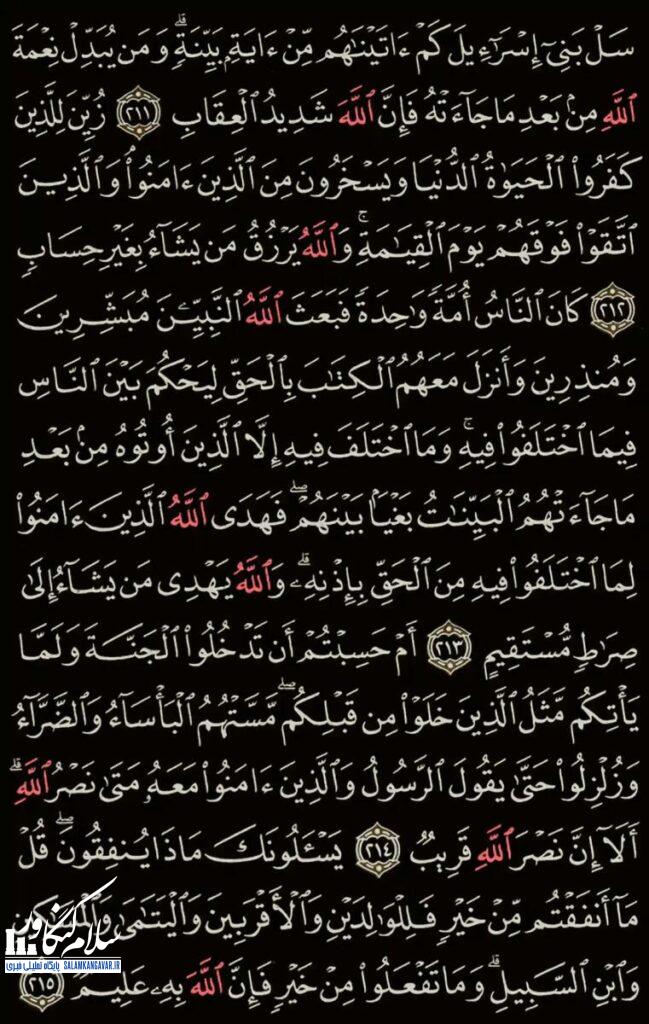 سَلْ بَنِىٓ إِسْرَٰٓءِيلَ كَمْ ءَاتَيْنَٰهُم مِّنْ ءَايَةٍۭ بَيِّنَةٍۗ وَمَن يُبَدِّلْ نِعْمَةَ
ٱللَّهِ مِنۢ بَعْدِ مَا جَآءَتْهُ فَإِنَّ ٱللَّهَ شَدِيدُ ٱلْعِقَابِ ٢١١ زُيِّنَ لِلَّذِينَ
كَفَرُوا۟ ٱلْحَيَوٰةُ ٱلدُّنْيَا وَيَسْخَرُونَ مِنَ ٱلَّذِينَ ءَامَنُوا۟ۘ وَٱلَّذِينَ
ٱتَّقَوْا۟ فَوْقَهُمْ يَوْمَ ٱلْقِيَٰمَةِۗ وَٱللَّهُ يَرْزُقُ مَن يَشَآءُ بِغَيْرِ حِسَابٍ
٢١٢ كَانَ ٱلنَّاسُ أُمَّةً وَٰحِدَةً فَبَعَثَ ٱللَّهُ ٱلنَّبِيِّۦنَ مُبَشِّرِينَ
وَمُنذِرِينَ وَأَنزَلَ مَعَهُمُ ٱلْكِتَٰبَ بِٱلْحَقِّ لِيَحْكُمَ بَيْنَ ٱلنَّاسِ
فِيمَا ٱخْتَلَفُوا۟ فِيهِۚ وَمَا ٱخْتَلَفَ فِيهِ إِلَّا ٱلَّذِينَ أُوتُوهُ مِنۢ بَعْدِ
مَا جَآءَتْهُمُ ٱلْبَيِّنَٰتُ بَغْيًۢا بَيْنَهُمْۖ فَهَدَى ٱللَّهُ ٱلَّذِينَ ءَامَنُوا۟
لِمَا ٱخْتَلَفُوا۟ فِيهِ مِنَ ٱلْحَقِّ بِإِذْنِهِۦۗ وَٱللَّهُ يَهْدِى مَن يَشَآءُ إِلَىٰ
صِرَٰطٍ مُّسْتَقِيمٍ ٢١٣ أَمْ حَسِبْتُمْ أَن تَدْخُلُوا۟ ٱلْجَنَّةَ وَلَمَّا
يَأْتِكُم مَّثَلُ ٱلَّذِينَ خَلَوْا۟ مِن قَبْلِكُمۖ مَّسَّتْهُمُ ٱلْبَأْسَآءُ وَٱلضَّرَّآءُ
وَزُلْزِلُوا۟ حَتَّىٰ يَقُولَ ٱلرَّسُولُ وَٱلَّذِينَ ءَامَنُوا۟ مَعَهُۥ مَتَىٰ نَصْرُ ٱللَّهِۗ
أَلَآ إِنَّ نَصْرَ ٱللَّهِ قَرِيبٌ ٢١٤ يَسْـَٔلُونَكَ مَاذَا يُنفِقُونَۖ قُلْ
مَآ أَنفَقْتُم مِّنْ خَيْرٍ فَلِلْوَٰلِدَيْنِ وَٱلْأَقْرَبِينَ وَٱلْيَتَٰمَىٰ وَٱلْمَسَٰكِينِ
وَٱبْنِ ٱلسَّبِيلِۗ وَمَا تَفْعَلُوا۟ مِنْ خَيْرٍ فَإِنَّ ٱللَّهَ بِهِۦ عَلِيمٌ ٢١٥
سلام کنگاور
پایگاه تحلیلی خبری SALAMKANGAVAR.IR